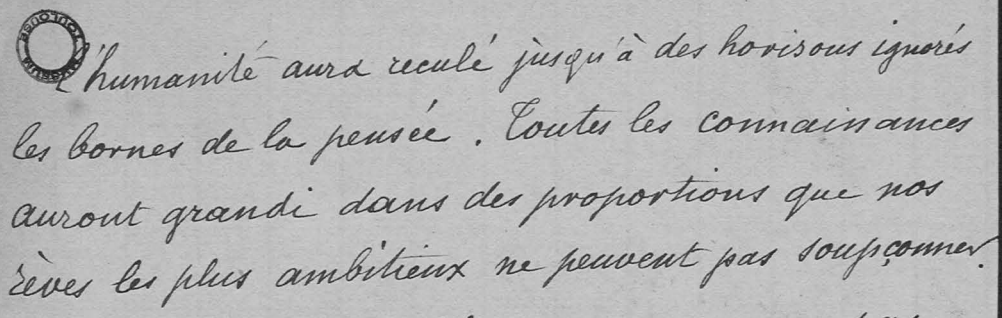 L'humanité aura reculé jusqu'à des horizons ignorés
les bornes de la pensée. Toutes les connaissances
auront grandi dans des proportions que nos
rêves les plus ambitieux ne peuvent pas soupçonner.